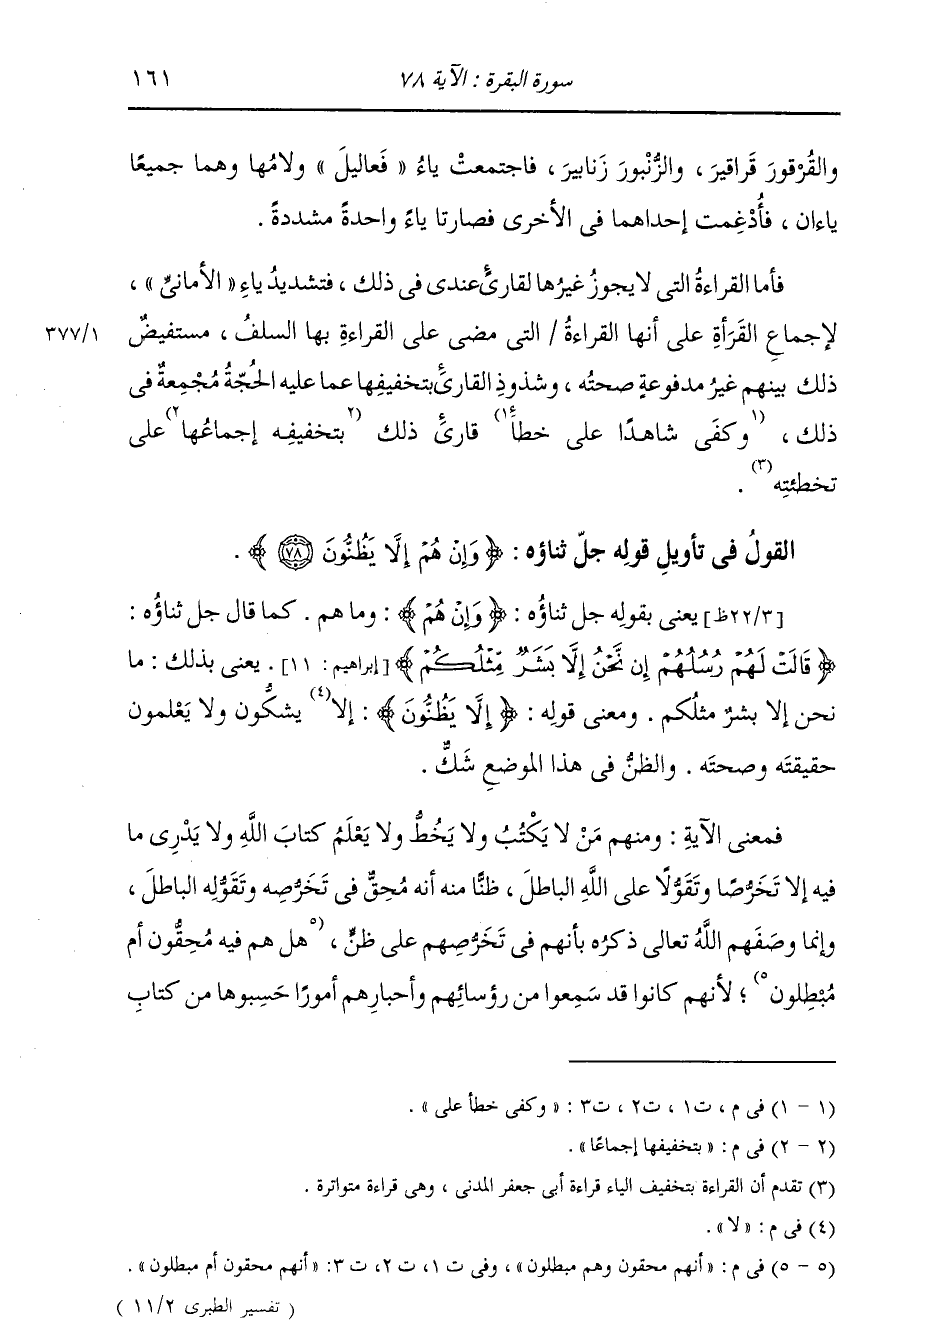 سورة البقرة : الآية ٧٨ ١٦١
والقُرْقورَ قَراقيرَ ، والزُّنْبورَ زَنابيرَ ، فاجتمعتْ ياءُ « فَعاليلَ » ولامُها وهما جميعًا
ياءان ، فأُدْغِمت إحداهما فى الأخرى فصارتا ياءً واحدةً مشددةً .
فأما القراءةُ التى لا يجوزُ غيرُها لقارئٍ عندى فى ذلك ، فتشديدُ ياءِ « الأمانىِّ » ،
لإجماعِ القَرَأةِ على أنها القراءةُ / التى مضى على القراءةِ بها السلفُ ، مستفيضٌ ٣٧٧/١
ذلك بينهم غيرُ مدفوعةٍ صحتُه ، وشذوذِ القارئِ بتخفيفِها عما عليه الحُجّةُ مُجْمِعةٌ فى
ذلك ، (١) وكفَى شاهدًا على خطأ (١) قارئِ ذلك (٢) بتخفيفِه إجماعُها (٢) على
تخطئتِه (٣) .
القولُ فى تأويلِ قولِه جلّ ثناؤه : ﴿ وَإِنْ هُمْ إِلَّا يَظُنُّونَ ٧٨ ﴾ .
[٢٢/٣ظ] يعنى بقولِه جل ثناؤُه : ﴿ وَإِنْ هُمْ ﴾ : وما هم . كما قال جل ثناؤُه :
﴿ قَالَتْ لَهُمْ رُسُلُهُمْ إِن نَّحْنُ إِلَّا بَشَرٌ مِّثْلُكُمْ ﴾ [إبراهيم : ١١] . يعنى بذلك : ما
نحن إلا بشرٌ مثلُكم . ومعنى قولِه : ﴿ إِلَّا يَظُنُّونَ ﴾ : إلا (٤) يشكُّون ولا يَعْلمون
حقيقتَه وصحتَه . والظنُّ فى هذا الموضعِ شَكٌّ .
فمعنى الآيةِ : ومنهم مَنْ لا يَكْتُبُ ولا يَخُطُّ ولا يَعْلَمُ كتابَ اللَّهِ ولا يَدْرِى ما
فيه إلا تَخَرُّصًا وتَقَوُّلًا على اللَّهِ الباطلَ ، ظنًّا منه أنه مُحِقٌّ فى تَخَرُّصِه وتَقَوُّلِه الباطلَ ،
وإنما وصَفَهم اللَّهُ تعالى ذكرُه بأنهم فى تَخَرُّصِهم على ظنٍّ ، (٥ هل هم فيه مُحِقُّون أم
مُبْطِلون ٥) ؛ لأنهم كانوا قد سَمِعوا من رؤسائِهم وأحبارِهم أمورًا حَسِبوها من كتابِ
(١ - ١) فى م ، ت١ ، ت٢ ، ت٣ : « وكفى خطأ على » .
(٢ - ٢) فى م : « بتخفيفها إجماعًا » .
(٣) تقدم أن القراءة بتخفيف الياء قراءة أبى جعفر المدنى ، وهى قراءة متواترة .
(٤) فى م : « لا » .
(٥ - ٥) فى م : « أنهم محقون وهم مبطلون » ، وفى ت ١، ت ٢، ت ٣: « أنهم محقون أم مبطلون » .
( تفسير الطبرى ١١/٢ )